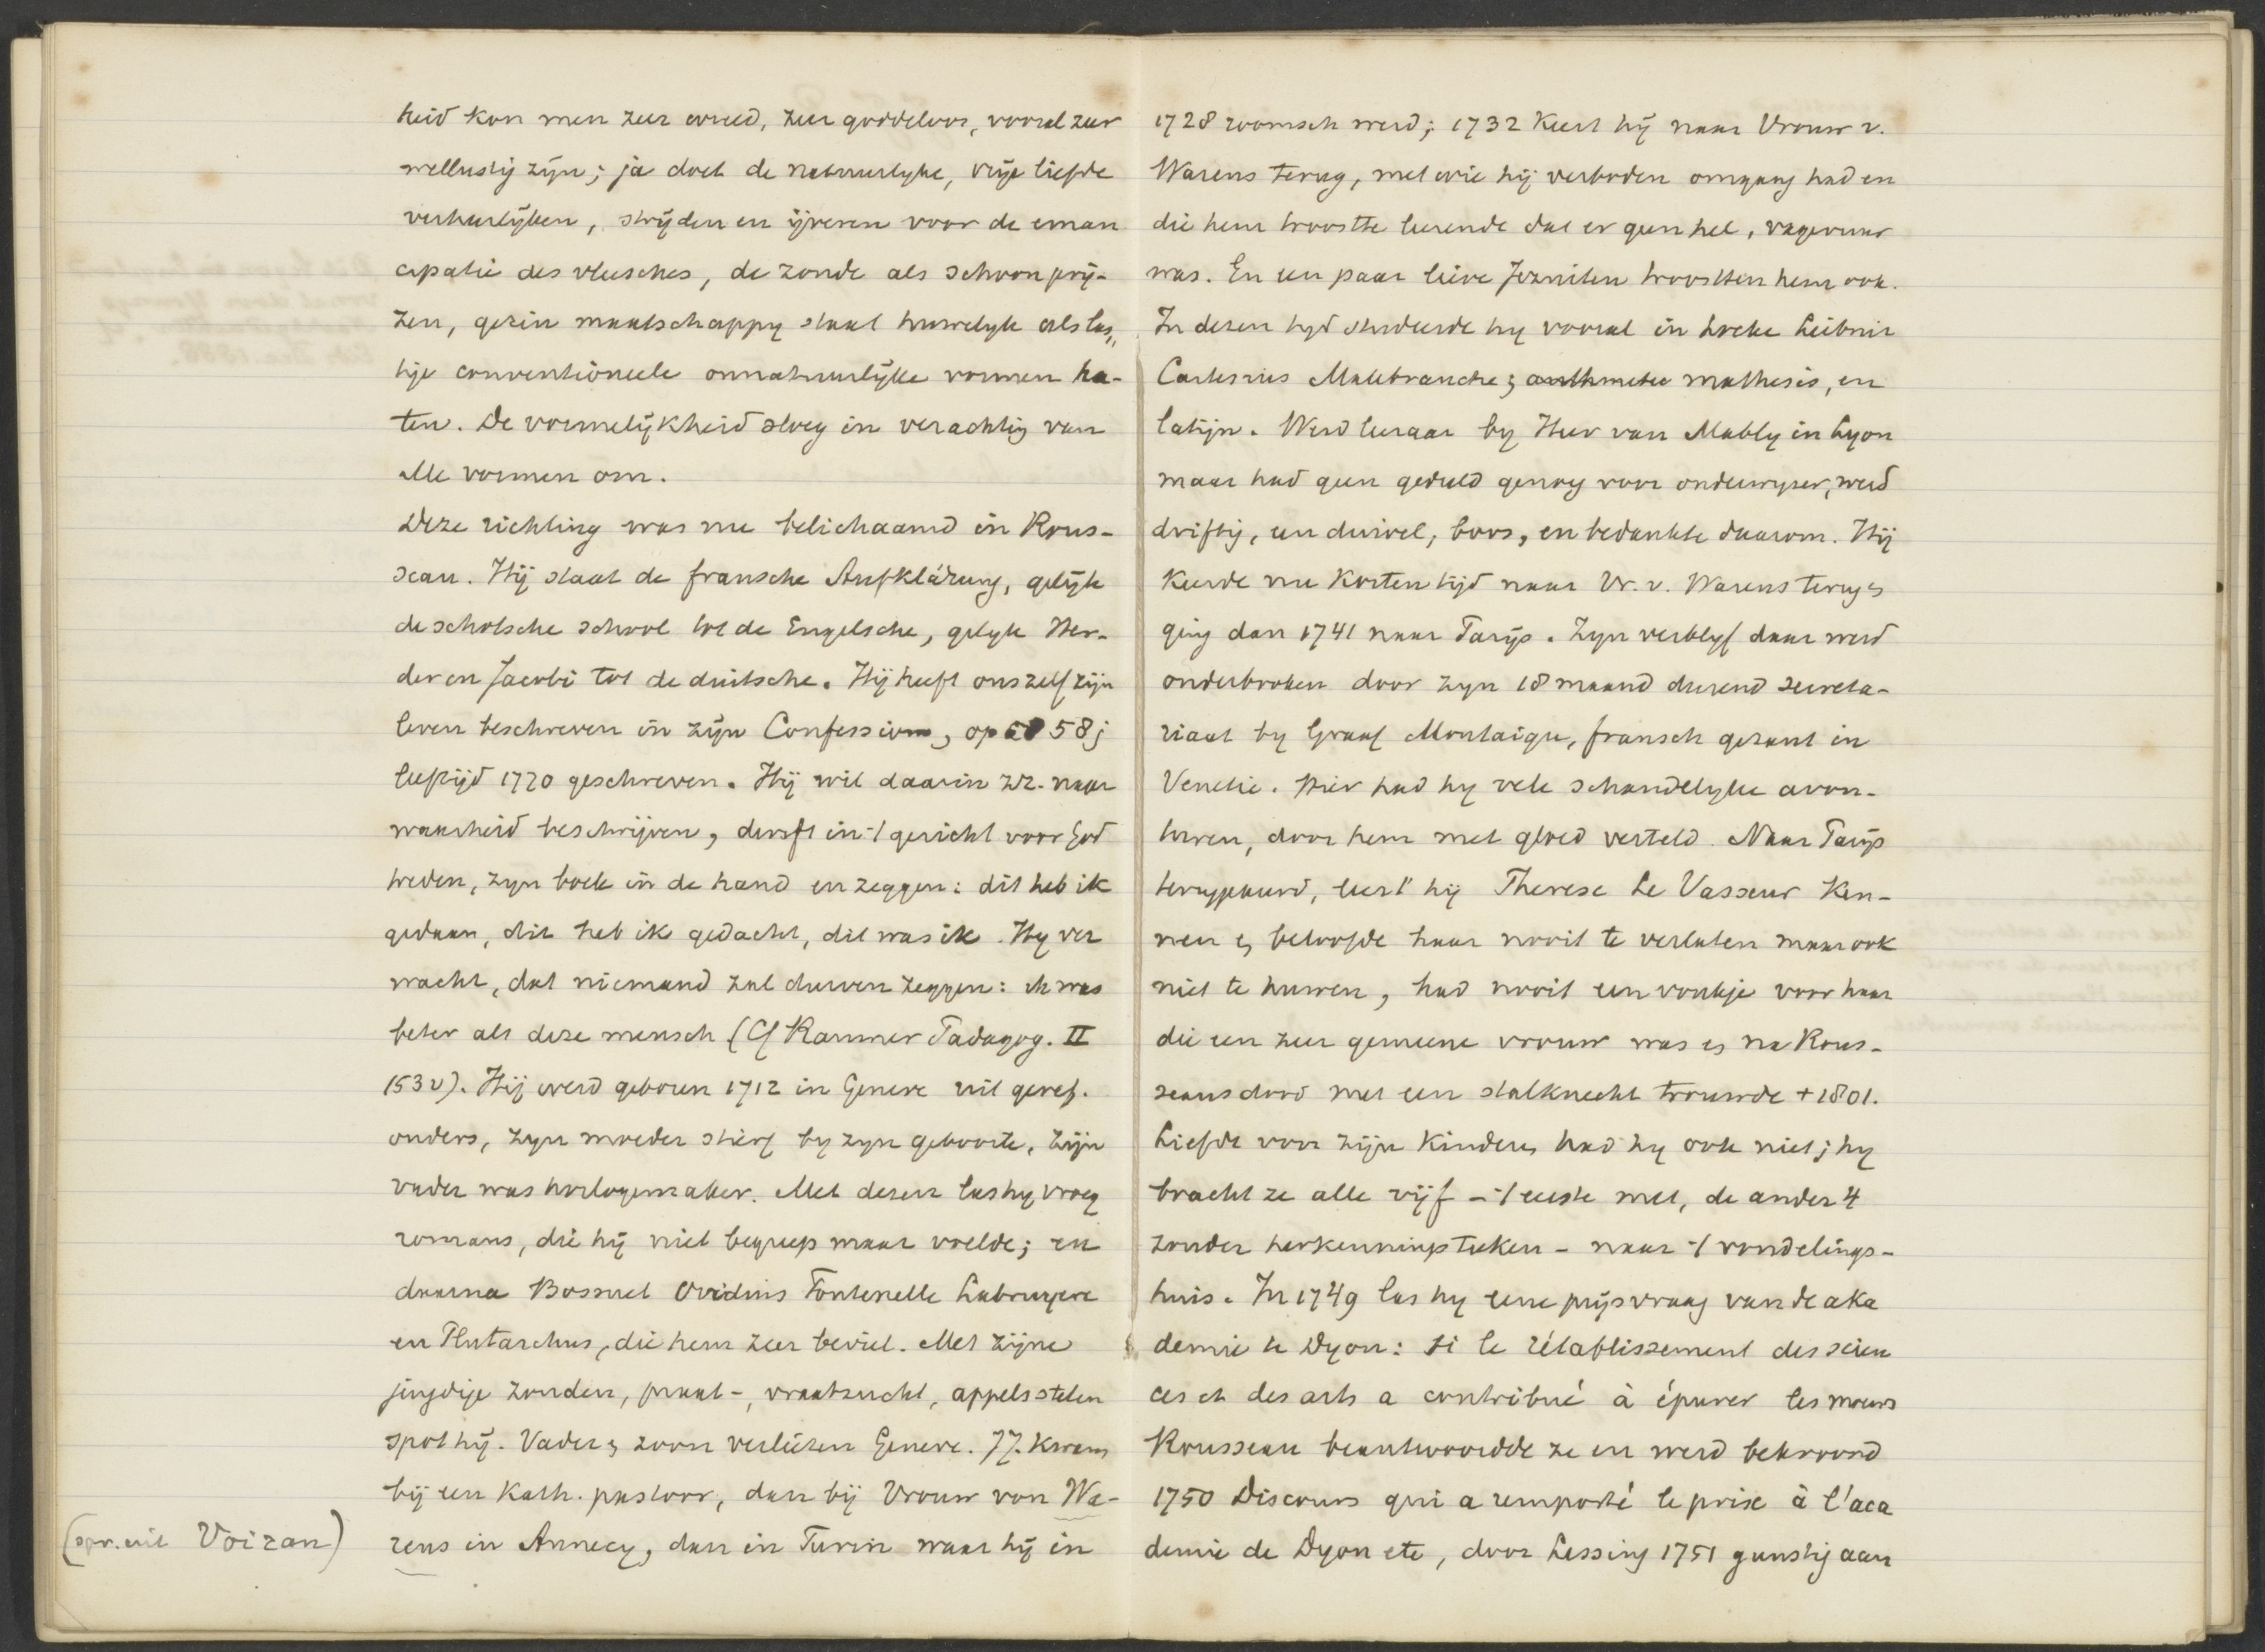 heid kon men zeer wreed, zeer goddeloos, vooral zeer
wellustig zijn; ja doch de natuurlyke, vrije liefde
verheerlijken, strijden en ijveren voor de eman
cipatie des vleesches, de zonde als schoon prij-
zen, gezin maatschappy staat huwelyk als las,,
tige conventioneele onnatuurlijke vormen ha-
ten. De vormelijkheid sloeg in verachting van
alle vormen om.
Deze richting was nu belichaamd in Rous-
seau. Hij staat de fransche Aufklärung, gelijk
de schotsche school tot de Engelsche, gelyk Her-
der en Jacobi tot de duitsche. Hij heeft ons zelf zijn
leven beschreven in zijn Confessions, op 58 j
leeftijd 1770 geschreven. Hij wil daarin zr. naar
waarheid beschrijven, durft in 't gericht voor God
treden, zyn boek in de hand en zeggen: dit heb ik
gedaan, dit heb ik gedacht, dit was ik. Hy ver
wacht, dat niemand zal durven zeggen: ik was
beter als deze mensch (Cf Raumer Padagog. II
153 v). Hij werd geboren 1712 in Geneve uit geref.
ouders, zyn moeder stierf by zyn geboorte, zijn
vader was horlogemaker. Met dezen las hy vroeg
romans, die hij niet begreep maar voelde; en
daarna Bossuet Ovidius Fontenelle Labruyere
en Plutarchus, die hem zeer beviel. Met zijne
jeugdige zonden, praat-, vraatzucht, appels stelen
spot hij. Vader en zoon verlieten Geneve. J.J. kwam
bij een Kath. pastoor, dan bij Vrouw von Wa-
(spr. uit Voiran) rens in Annecy, dan in Turin waar hij in
1728 roomsch werd; 1732 keert hij naar Vrouw v.
Warens terug, met wie hij verboden omgang had en
die hem troostte leerende dat er geen hel, vagevuur
was. En een paar lieve Jezuiten troostten hem ook.
In dezen tyd studeerde hy vooral in Locke Leibniz
Cartesius Malebranche; arithmetic mathesis, en
latijn. Werd leeraar by Heer van Mably in Lyon
maar had geen geduld genoeg voor onderwyzer, werd
driftig, een duivel, boos, en bedankte daarom. Hij
keerde nu korten tijd naar Vr. v. Warens terug en
ging dan 1741 naar Parijs. Zyn verblyf daar werd
onderbroken door zyn 18 maand durend secreta-
riaat by Graaf Montaigu, fransch gezant in
Venetie. Hier had hy vele schandelyke avon-
turen, door hem met gloed verteld. Naar Parijs
teruggekeerd, leert hij Therese Le Vasseur ken-
nen en beloofde haar nooit te verlaten maar ook
niet te huwen, had nooit een vonkje voor haar
die een zeer gemeene vrouw was en na Rous-
seaus dood met een stalknecht trouwde + 1801.
Liefde voor zijn kinderen had hy ook niet; hy
bracht ze alle vijf - 't eerste met, de ander 4
zonder herkenningsteeken - naar 't vondelings-
huis. In 1749 las hy eene prijsvraag van de aka
demie te Dyon: si le rétablissement des scien
ces et des arts a contribué à épurer les moeurs
Rousseau beantwoordde ze en werd bekroond
1750 Discours qui a remporté le prix à l'aca
demie de Dyon etc, door Lessing 1751 gunstig aan